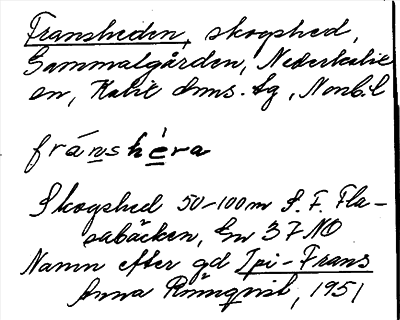 Fransheden, skogshed,
Gammalgården, Nederkalix
sn, Kalix dms. tg, Nonb.l
fránshéra
Skogshed 50-100m S. F. Fla-
sabäcken, En 37 NO
Namn efter gd Ipi-Frans
Anna Rönnqvist, 1951